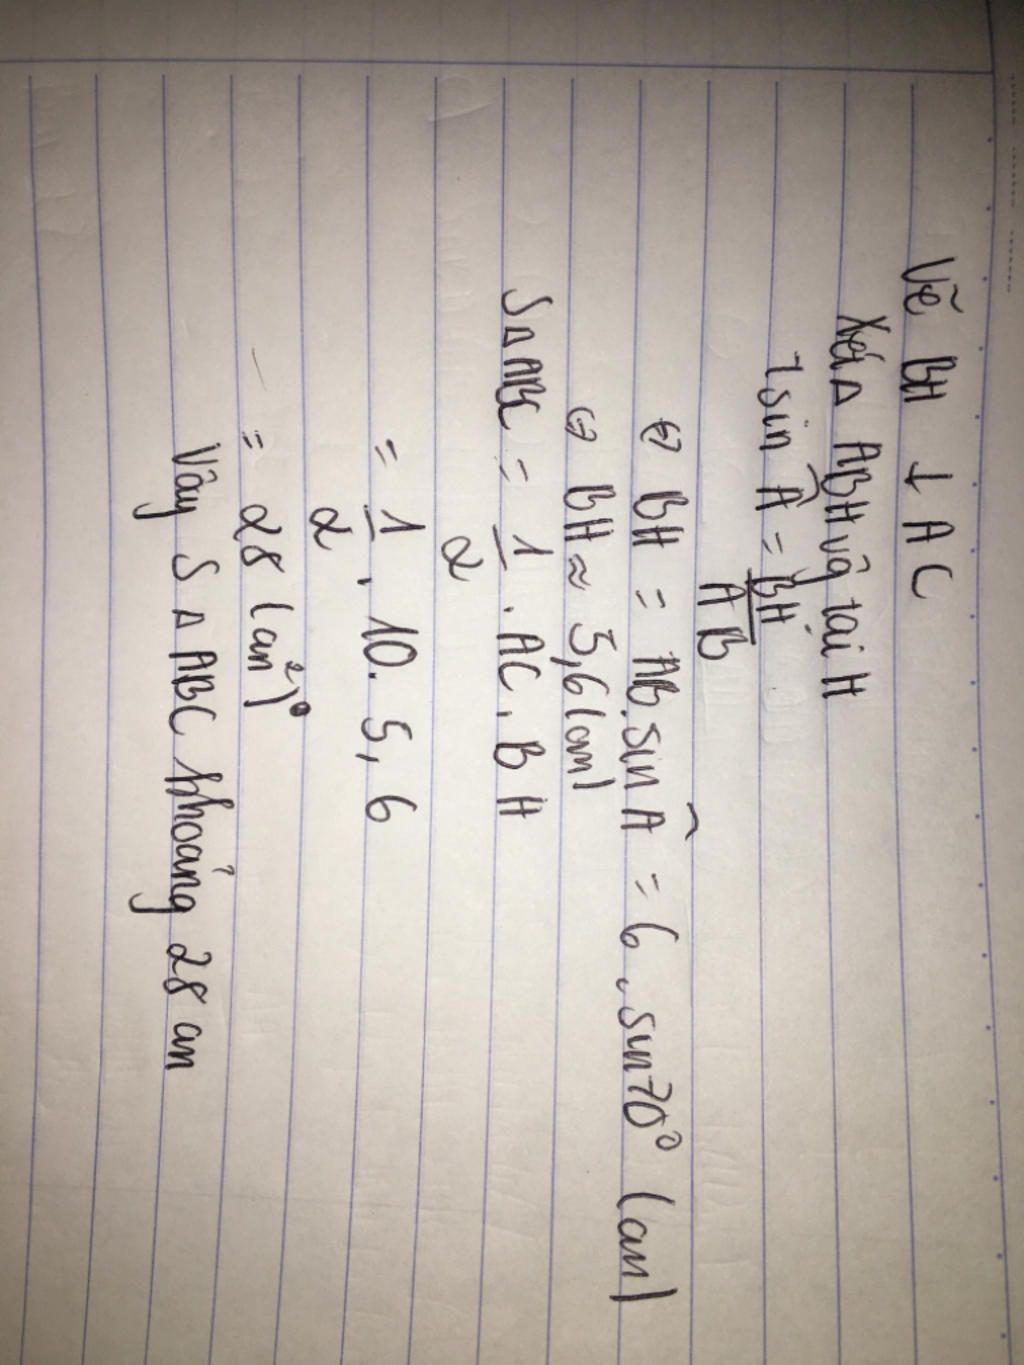 Vẽ BH ⊥ AC
Xét Δ ABH vg tại H
sin Â = BH/AB
⇔ BH = AB.sin Â = 6.sin70° (cm)
⇔ BH ≈ 5,6 (cm)
SΔABC = 1/2 . AC . BH
= 1/2 . 10 . 5,6
= 28 (cm²)
Vậy SΔABC khoảng 28 cm